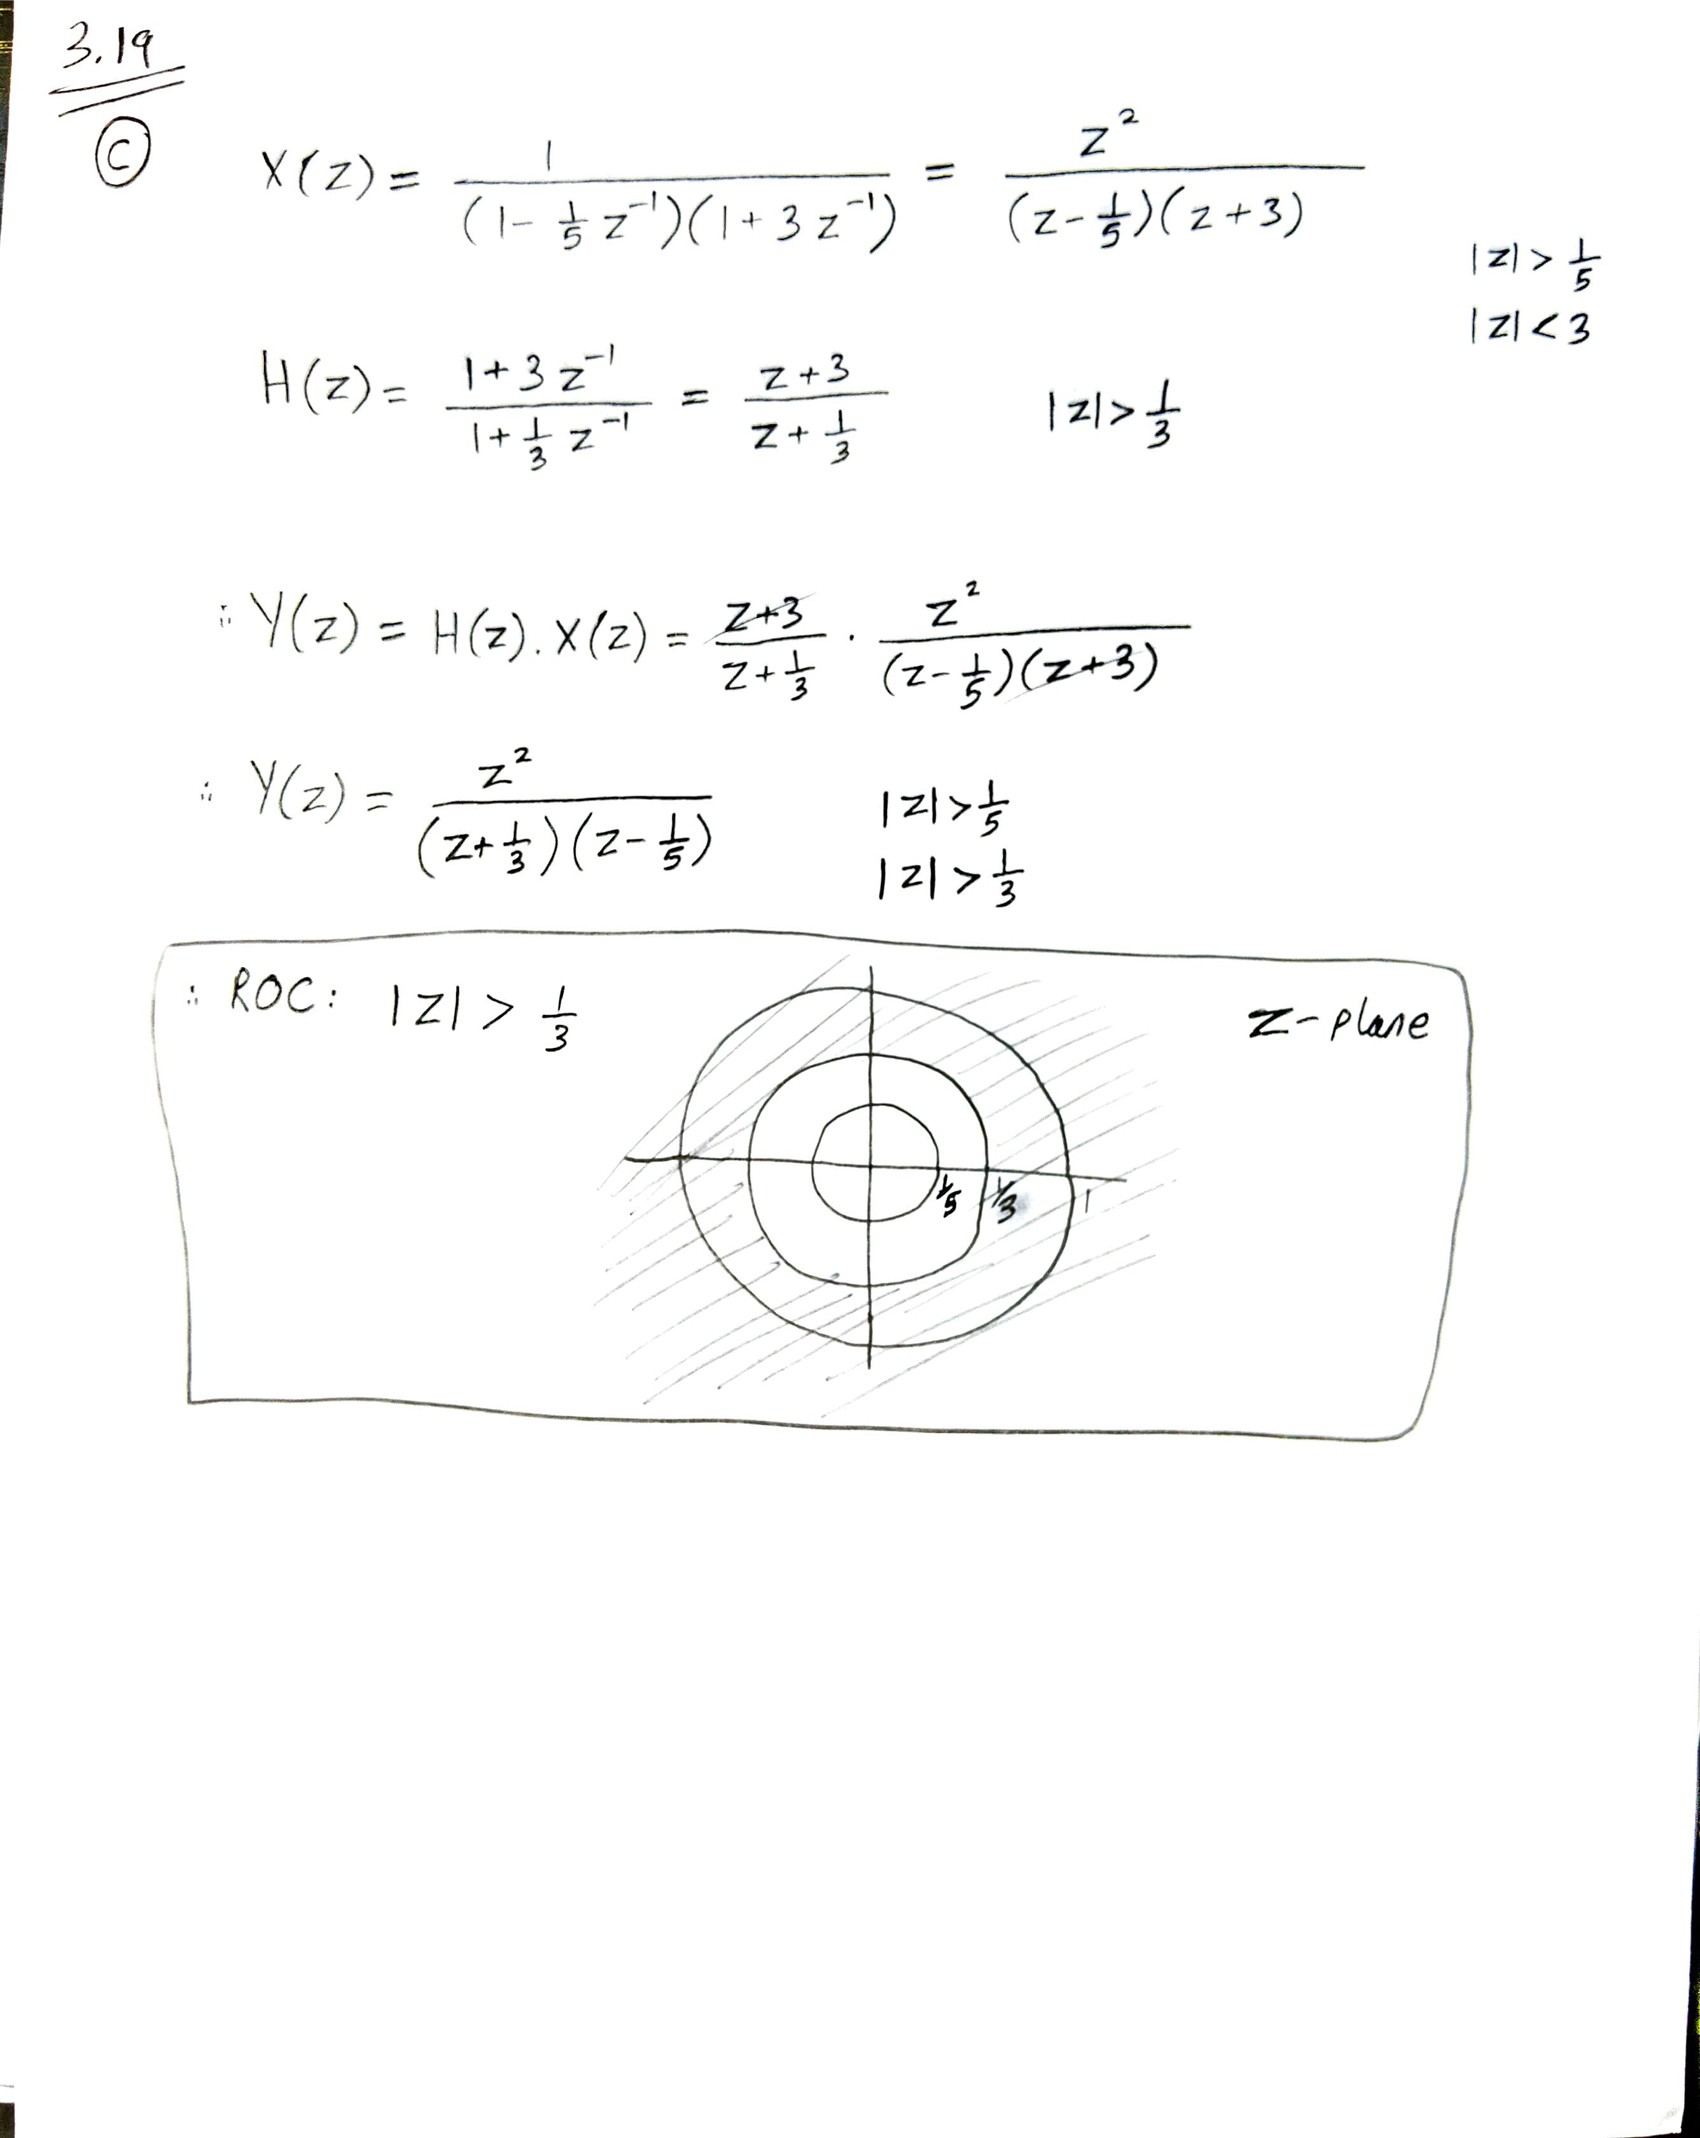 3.19
ⓒ
X(z) = 1 / ((1 - 1/5 z⁻¹)(1 + 3 z⁻¹)) = z² / ((z - 1/5)(z + 3))
|z| > 1/5
|z| < 3
H(z) = (1 + 3 z⁻¹) / (1 + 1/3 z⁻¹) = (z + 3) / (z + 1/3) |z| > 1/3
∴ Y(z) = H(z). X(z) = (z + 3) / (z + 1/3) · z² / ((z - 1/5)(z + 3))
∴ Y(z) = z² / ((z + 1/3)(z - 1/5)) |z| > 1/5
|z| > 1/3
∴ ROC: |z| > 1/3
z-plane
1/5 1/3 1